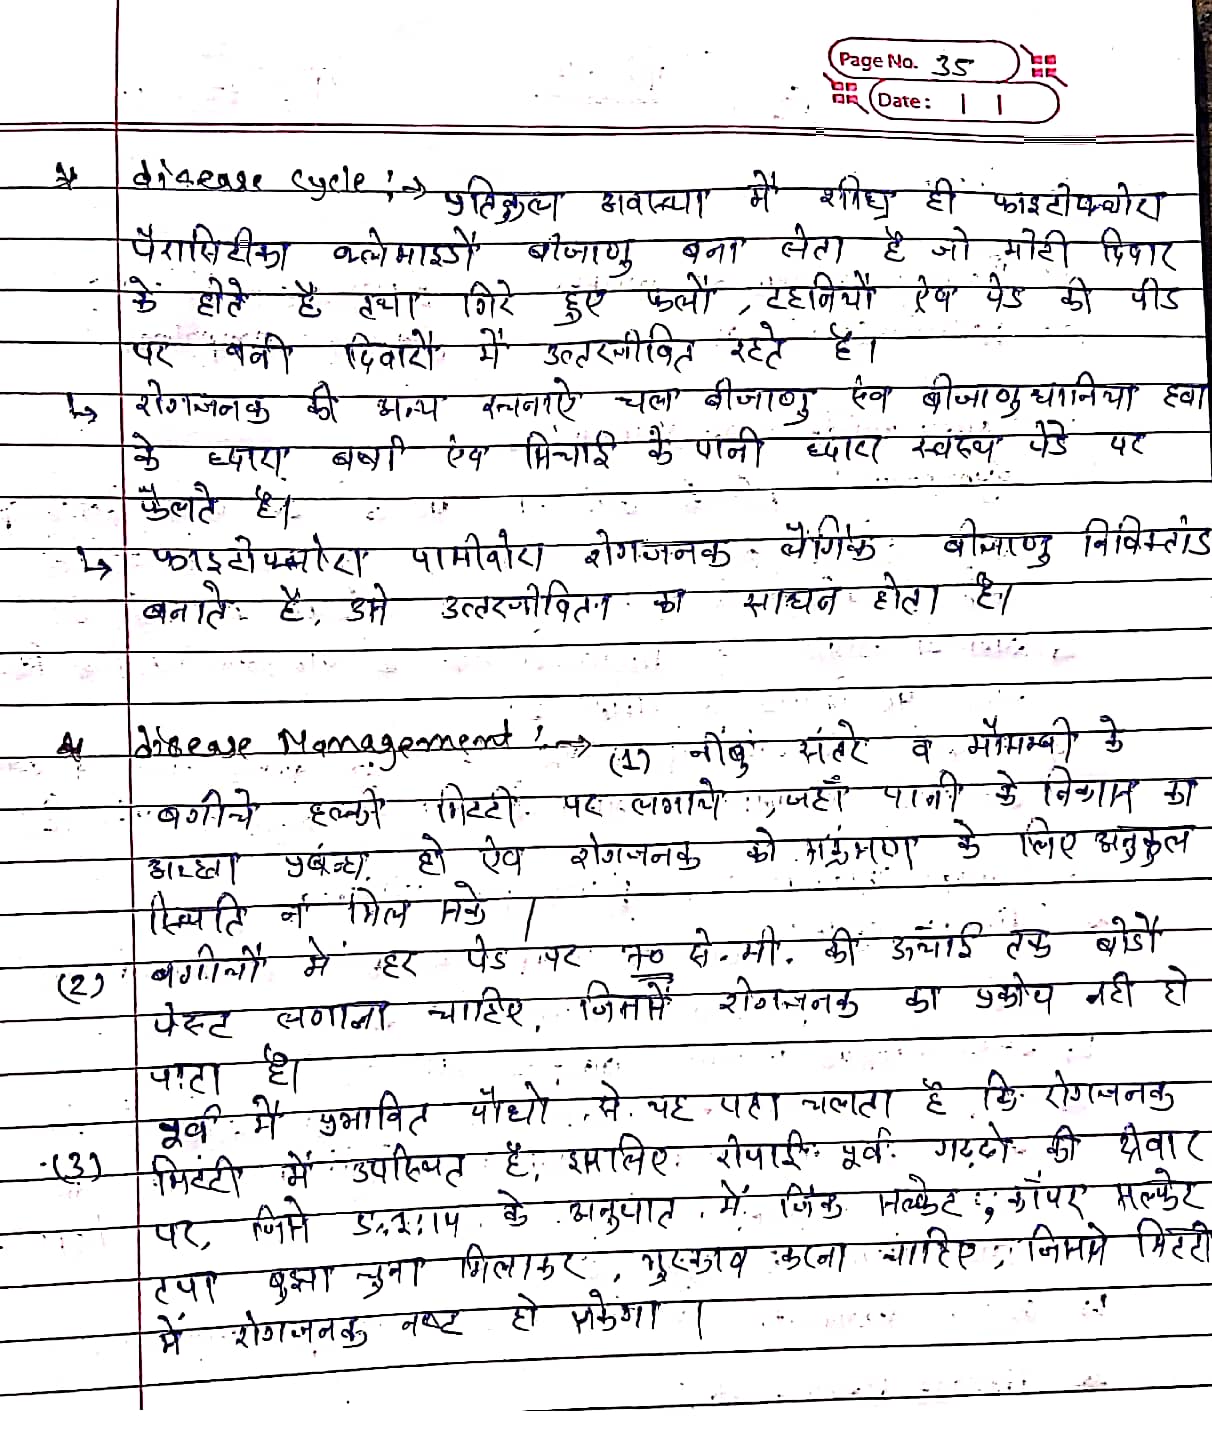 Page No. 35
Date: | |
* disease cycle :→ प्रतिकुल अवस्था में शीघ्र ही फाइटोफ्थोरा
पैरासिटीका क्लेमाइडों बीजाणु बना लेता है जो मोटी दिवार
के होते है तथा गिरे हुए फलों, टहनियों ऐव पेड की पीड
पर बनी दिवारों में उत्तरजीवित रहते है।
↳ रोगजनक की अन्य रचनाऐ चल बीजाणु एंव बीजाणुधानिया हवा
के ध्दारा बर्षा एंव सिचाई के पानी ध्दारा स्वस्थ पेडे पर
फैलते है।
↳ फाइटोफ्थोरा पामीवोरा रोगजनक लैंगिक बीजाणु निषिक्तांड
बनाते है, उसे उत्तरजीवितन का साधन होता है।
* disease Management :→ (1) नींबुं संतरे व मौसम्बी के
बगीचे हल्की मिटटी पर लगाये, जहाँ पानी के निकास का
अच्छा प्रबंन्ध हो ऐव रोगजनक को संक्रमण के लिए अनुकुल
स्थिति न मिल सके।
(2) बगीचों में हर पेड पर 70 से.मी. की ऊचांई तक बोर्डो
पेस्ट लगाना चाहिए, जिससे रोगजनक का प्रकोप नही हो
पाता है।
पूर्व में प्रभावित पौधो से यह पता चलता है कि रोगजनक
(3) मिटटी में उपस्थित है, इसलिए रोपाई पूर्व गढ्ढो की
पर, जिसे 5:1:14 के अनुपात में जिंक सल्फेट, कॉपर सल्फेट
तथा बुझा चुना मिलाकर, भुरकाव करना चाहिए, जिससे मिटटी
में रोगजनक नष्ट हो सकेगा।